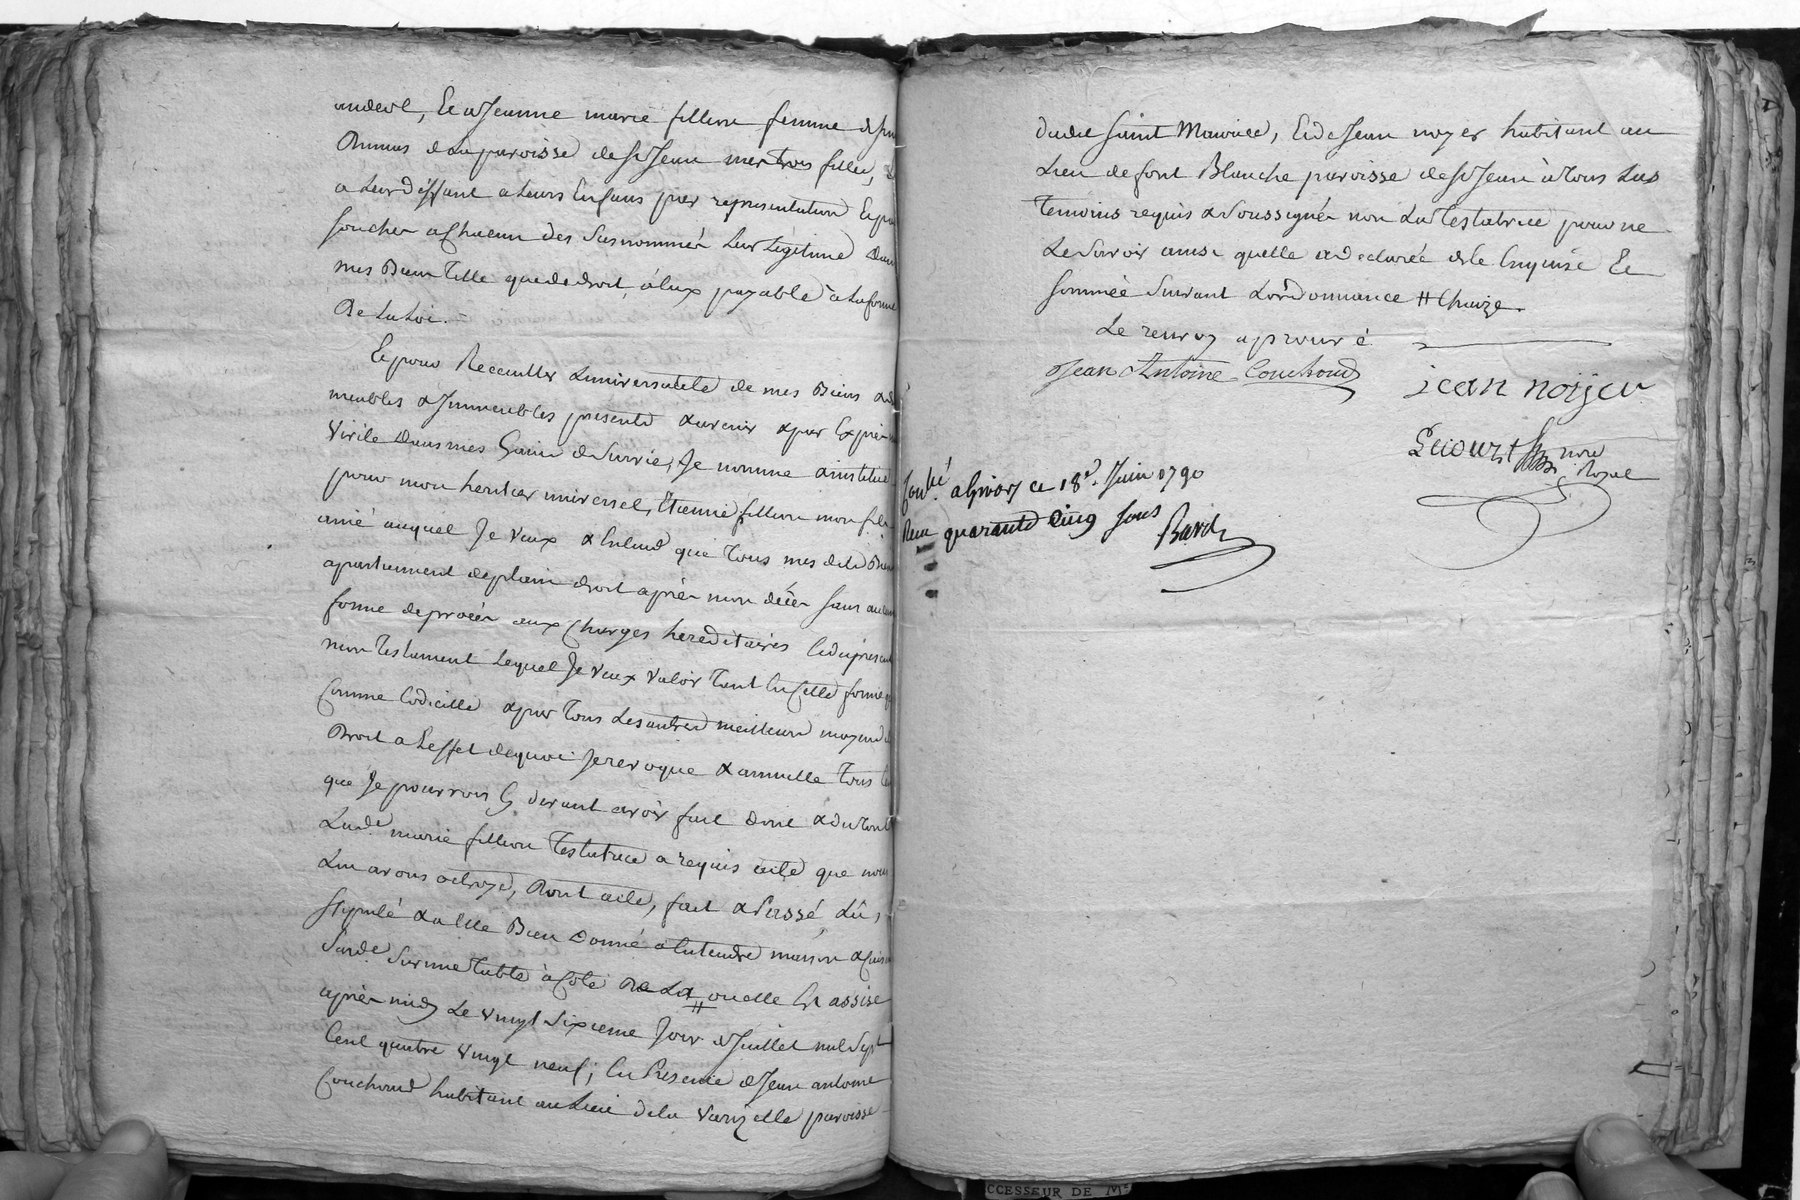 andeol, Et a Jeanne marie fillion femme de
Primus de la paroisse de St Jean mes trois filles, &
a leur deffaut a leurs Enfans par representation Et par
souches a Chacun des susnommés leur Légitime dans
mes Biens telle que de droit, a Eux payable à la forme
De la Loi.
Et pour Recueillir Luniversalité de mes Biens
meubles & Immeubles presents & avenir & par Exprès
virile dans mes Gains de Survie, Je nomme & institue
pour mon heritier universel, Etienne fillion mon fils
ainé auquel Je veux & Entend que Tous mes dits Biens
apartiennent de plain droit après mon décès sans aucune
forme de procès aux Charges hereditaires
mon Testament Lequel Je veux valoir Tant En Cette forme que
Comme Codicille & par Tous Les autres meilleurs moyens de
Droit a L'effet de quoi Je revoque & annulle Tous
que Je pourrois Cy devant avoir fait dont & du tout
Lade. marie fillion Testatrice a requis acte que nous
Lui avons octroyé, Dont acte, fait & Passé, Lû,
stipulé & a Elle Bien donné a Entendre maison
Sur une Table à Coté De La quelle Est assise
après midy Le vingt Sixieme Jour de Juillet mil Sept
Cent quatre vingt neuf; En Presence de Jean antoine
Couchoud habitant au Lieu de la Varizelle paroisse
dudit Saint Maurice, Et de Jean noyer habitant au
Lieu de font Blanche paroisse de St Jean à tous Las
Temoins requis & Soussignés non La Testatrice pour ne
Le Savoir ainsi quelle a declarée de ce Enquise Et
Sommée Suivant Lordonnance # Chaize.
Le renvoy aprouvé
Jean Antoine Couchoud
jean noijer
Lecourt nore
Royal
Conlé. a Givors ce 18e. Juin 1790
Reçu quarante Cinq sous
Bard
CCESSEUR DE Me